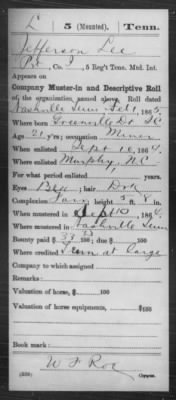 L 5 (Mounted). Tenn.
Jefferson Lee
Pvt, Co. I, 5 Reg't Tenn. Mtd. Inf.
Appears on
Company Muster-in and Descriptive Roll
of the organization named above. Roll dated
Nashville Tenn Feb 1, 1865
Where born Greenville Dt. SC
Age 21 y'rs; occupation Miner
When enlisted Sept 10, 1864
Where enlisted Murphy, N.C.
For what period enlisted years.
Eyes Blk; hair Drk
Complexion Fair; height 5 ft. 8 in.
When mustered in Sept 10, 1864
Where mustered in Nashville Tenn
Bounty paid $33 100; due $ 100
Where credited Tenn at large
Company to which assigned
Valuation of horse, $ 100
Valuation of horse equipments, $ 100
Remarks:
Book mark:
W F Roe
(339) Copyist.